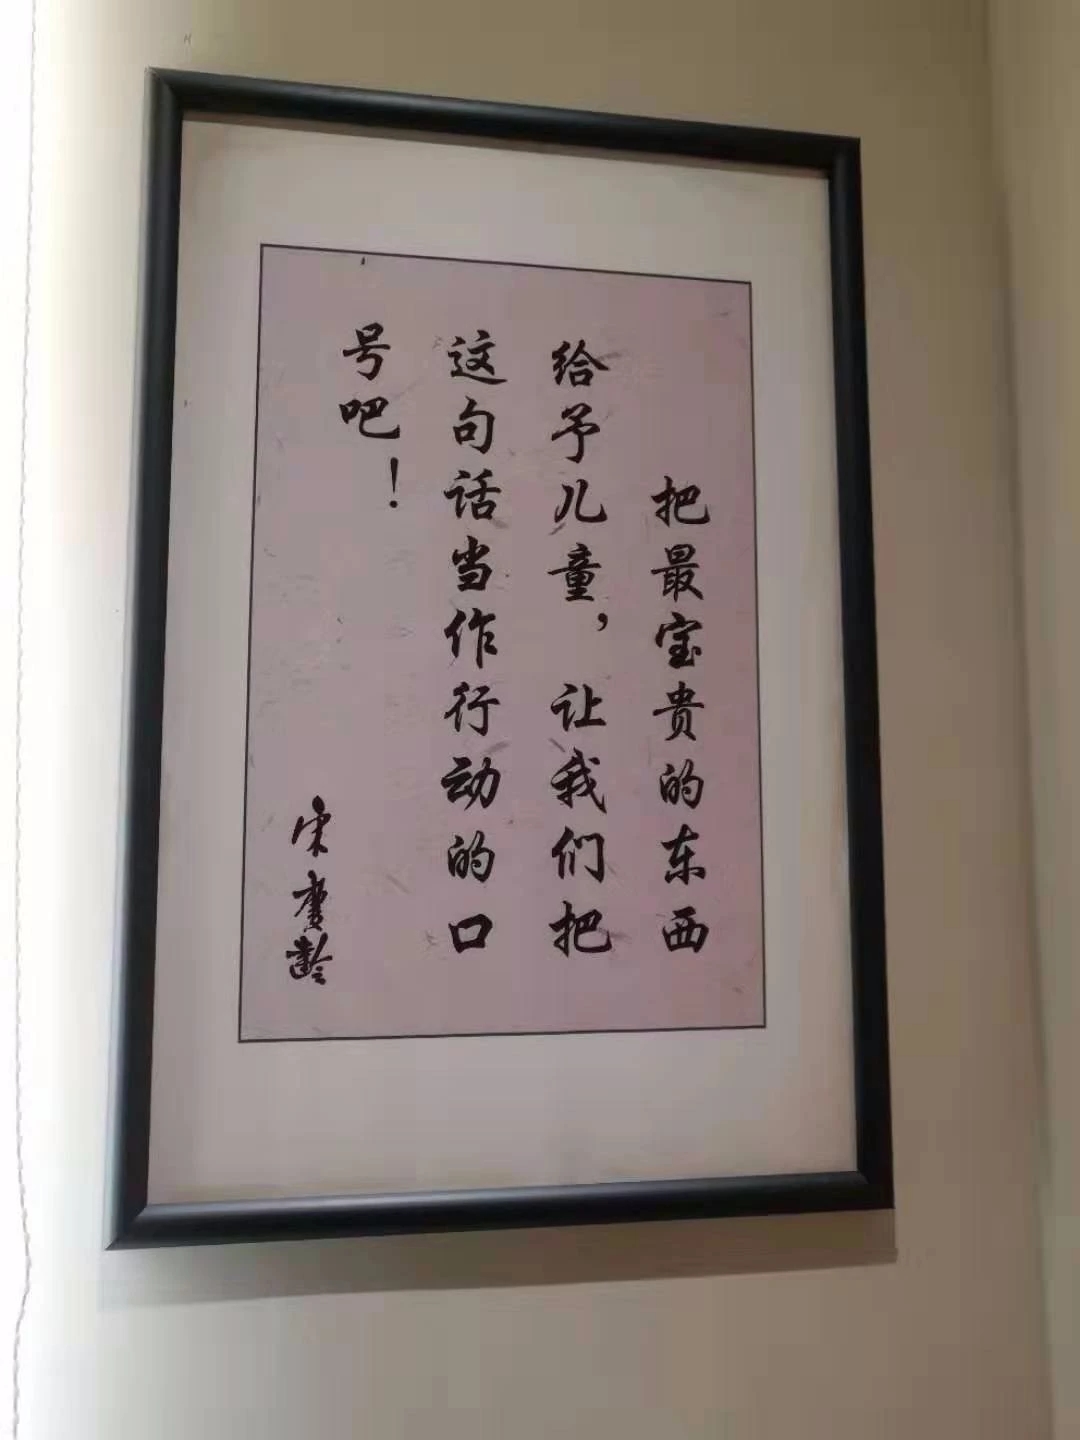 把最宝贵的东西
给予儿童，让我们把
这句话当作行动的口
号吧！
宋庆龄